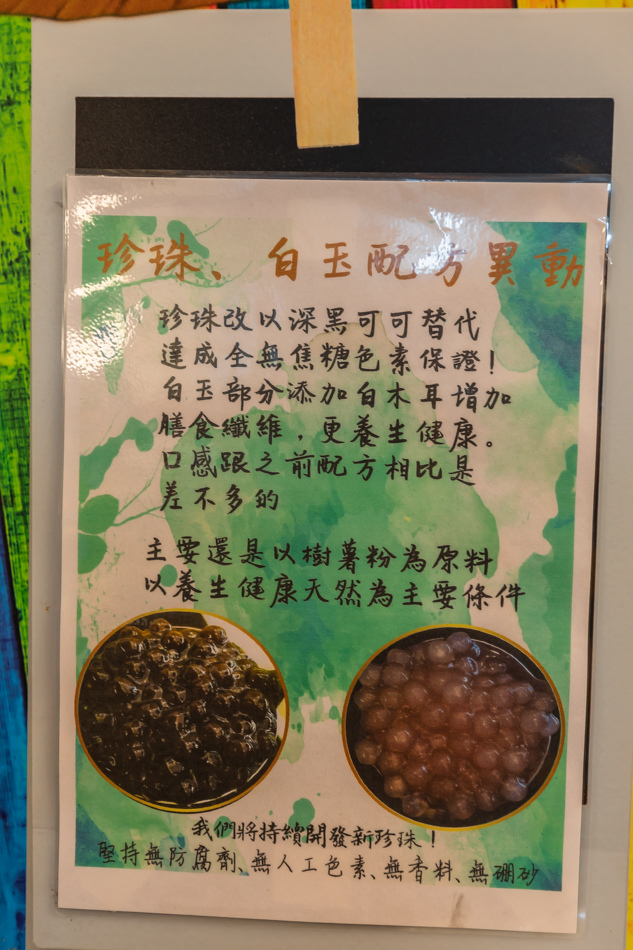 珍珠、白玉配方異動
珍珠改以深黑可可替代
達成全無焦糖色素保證!
白玉部分添加白木耳增加
膳食纖維,更養生健康。
口感跟之前配方相比是
差不多的
主要還是以樹薯粉為原料
以養生健康天然為主要條件
我們將持續開發新珍珠!
堅持無防腐劑、無人工色素、無香料、無硼砂